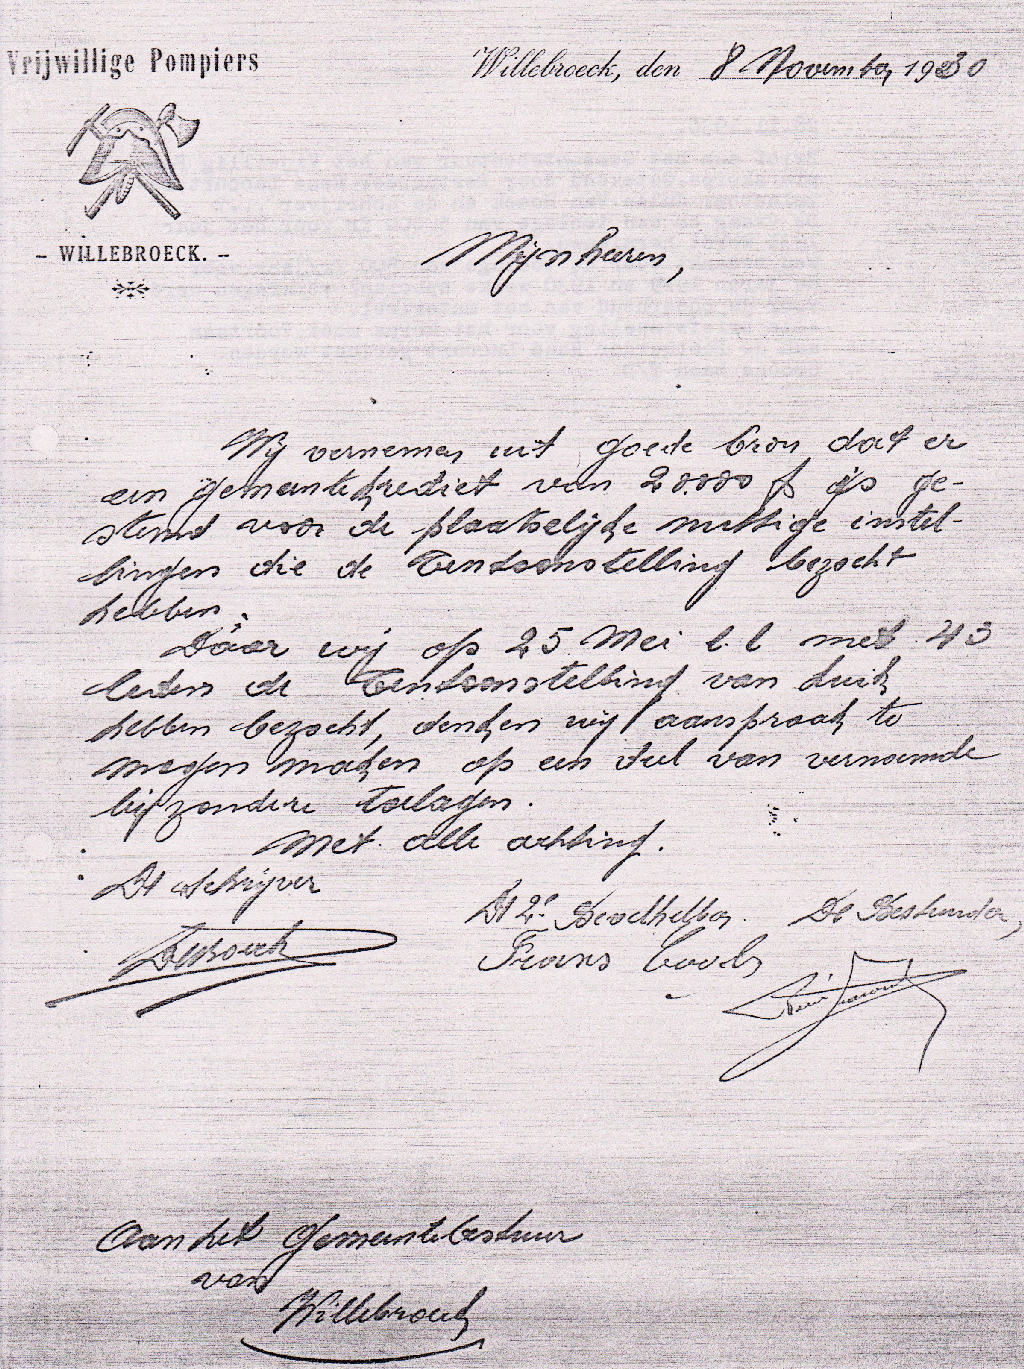 Vrijwillige Pompiers
Willebroeck, den 8 November 1930
- WILLEBROECK. -
Mijnheeren,
Wij vernemen uit goede bron dat er
een gemeentekrediet van 20.000 f is ge-
stemd voor de plaatselijke nuttige instel-
lingen die de Tentoonstelling bezocht
hebben.
Daar wij op 25 Mei l.l met 43
leden de Tentoonstelling van Luik
hebben bezocht, denken wij aanspraak te
mogen maken op een deel van vernoemde
bijzondere toelagen.
Met alle achting.
De Schrijver
De 2e Bevelhebber. De Bestuurder,
Frans Cools
Aan het Gemeentebestuur
van
Willebroeck